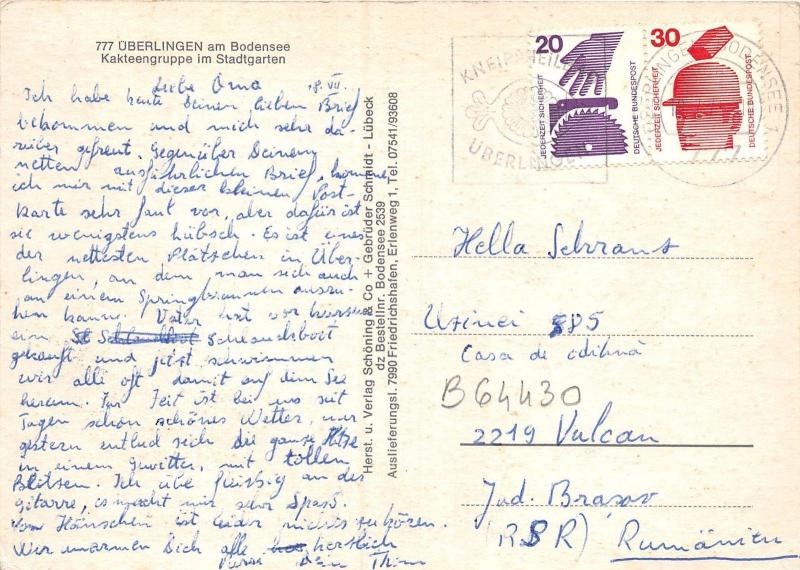 777 ÜBERLINGEN am Bodensee
Kakteengruppe im Stadtgarten
Liebe Oma 18. VII.
Ich habe heute Deinen lieben Brief
bekommen und mich sehr da-
rüber gefreut. Gegenüber Deinem
netten ausführlichen Brief, komme
ich mir mit dieser kleinen Post-
karte sehr faul vor, aber dafür ist
sie wenigstens hübsch. Es ist eines
der nettesten Plätschen in Über-
lingen, an dem man sich auch
an einem Springbrunnen auszu-
hen kann. Vater hat vor kurzem
ein Schlauchboot
gekauft und jetzt schwimmen
wir alle oft damit auf dem See
herum. Zur Zeit ist bei uns seit
Tagen schon schönes Wetter, nur
gestern entlud sich die ganze Hitze
in einem Gewitter, mit tollen
Blitzen. Ich übe fleissig an der
Gitarre, es macht mir sehr Spass.
Von Hänschen ist leider nichts zu hören.
Wir umarmen Dich alle herzlich
Dein
Herst. u. Verlag Schöning & Co + Gebrüder Schmidt - Lübeck
dz Bestellnr. Bodensee 2539
Auslieferungsl. 7990 Friedrichshafen, Erlenweg 1, Tel. 07541/93608
KNEIPPHEIL
ÜBERLINGEN
20
JEDERZEIT SICHERHEIT
DEUTSCHE BUNDESPOST
30
JEDERZEIT SICHERHEIT
DEUTSCHE BUNDESPOST
ÜBERLINGEN, BODENSEE 1
Hella Schrant
Uzinei 585
Casa de odihnă
B64430
2219 Vulcan
Jud. Brașov
(RSR) Rumänien